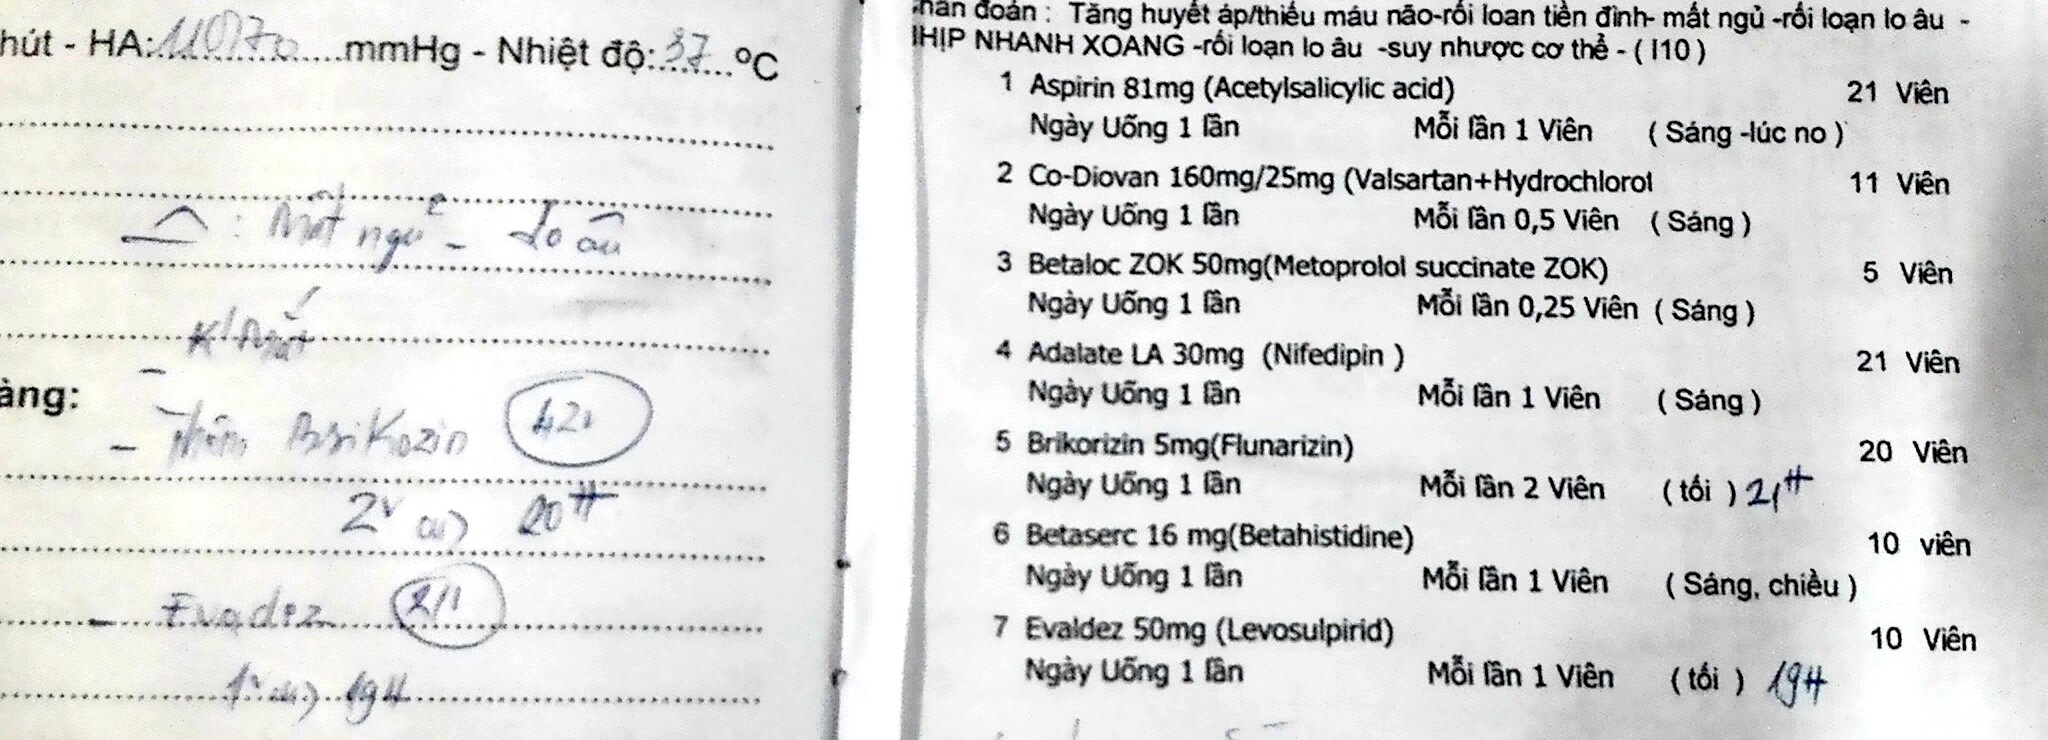 hút - HA: 110/70 mmHg - Nhiệt độ: 37 °C
Δ: Mất ngủ - lo âu
- K/Mắt
àng:
- Thêm Brikozin 42v
2v 20H
- Evadez 21v
1v 19H
hẩn đoán : Tăng huyết áp/thiếu máu não-rối loan tiền đình- mất ngủ -rối loạn lo âu -
NHỊP NHANH XOANG -rối loạn lo âu -suy nhược cơ thể - ( I10 )
1 Aspirin 81mg (Acetylsalicylic acid) 21 Viên
Ngày Uống 1 lần Mỗi lần 1 Viên ( Sáng -lúc no )
2 Co-Diovan 160mg/25mg (Valsartan+Hydrochlorol 11 Viên
Ngày Uống 1 lần Mỗi lần 0,5 Viên ( Sáng )
3 Betaloc ZOK 50mg(Metoprolol succinate ZOK) 5 Viên
Ngày Uống 1 lần Mỗi lần 0,25 Viên ( Sáng )
4 Adalate LA 30mg (Nifedipin ) 21 Viên
Ngày Uống 1 lần Mỗi lần 1 Viên ( Sáng )
5 Brikorizin 5mg(Flunarizin) 20 Viên
Ngày Uống 1 lần Mỗi lần 2 Viên ( tối ) 21H
6 Betaserc 16 mg(Betahistidine) 10 viên
Ngày Uống 1 lần Mỗi lần 1 Viên ( Sáng, chiều )
7 Evaldez 50mg (Levosulpirid) 10 Viên
Ngày Uống 1 lần Mỗi lần 1 Viên ( tối ) 19H